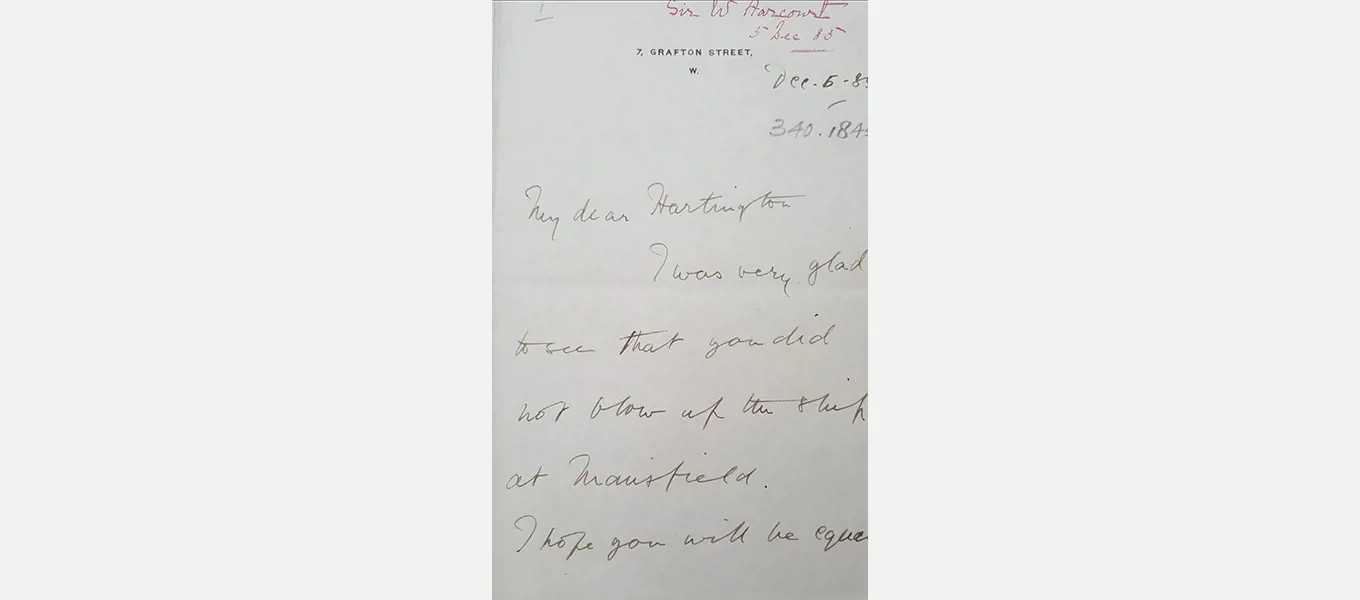 1
Sir W Harcourt
5 Dec 85
7, GRAFTON STREET,
W.
Dec. 5 - 8
340.184
My dear Hartington
I was very glad
to see that you did
not blow up the ship
at Mansfield.
I hope you will be equa